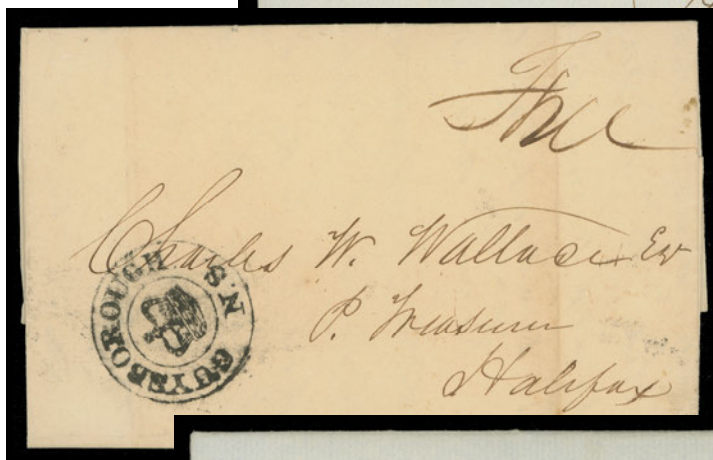 Free
Charles W. Wallace Esq
P. Treasurer
Halifax
GUYSBOROUGH N.S